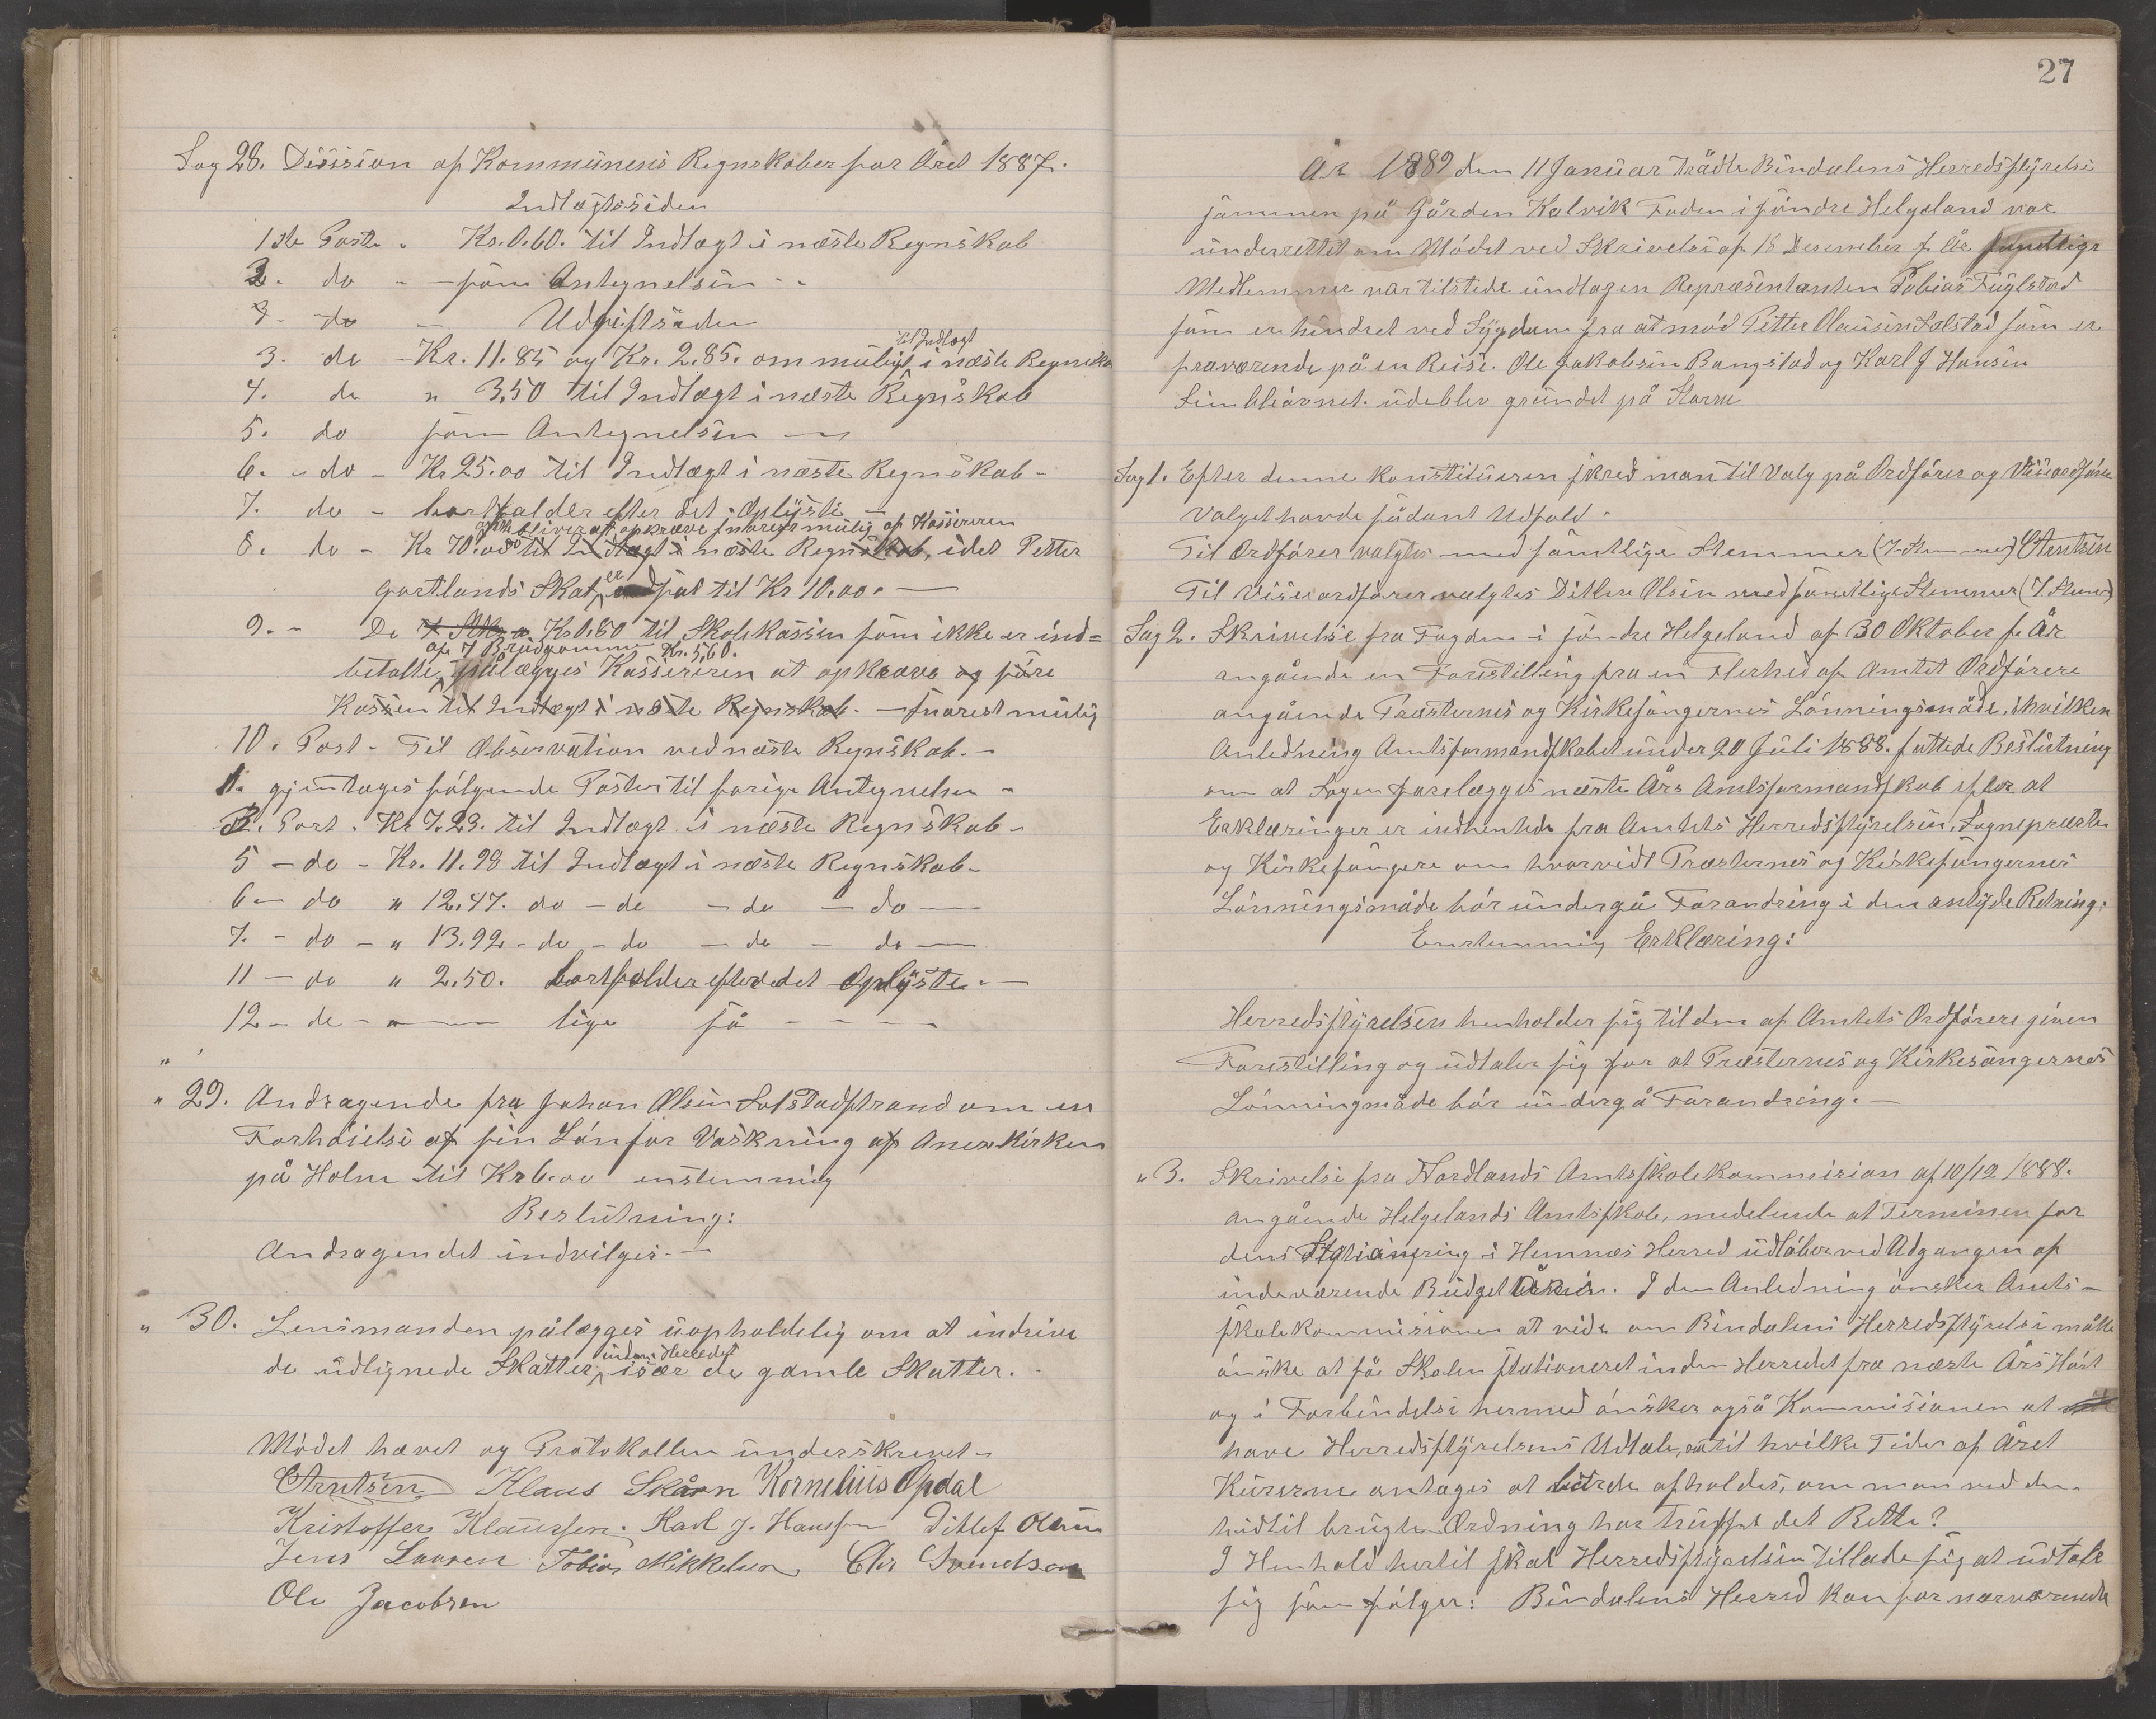 Sag 28. Desision af Kommunens Regnskaber for Året 1887.
Indtægtssiden
1ste Post. Kr. 0.60. til Indtægt i næste Regnskab
2. do - - som Antegnelsen - -
3 - do - Udgiftsiden
til Indtægt
3. do - Kr. 11.85 og Kr. 2.85. om muligt i næste Regnskab
4. do " 3,50 til Indtægt i næste Regnskab
5. do som Antegnelsen —
6. - do - Kr 25.00 til Indtægt i næste Regnskab -
7. do - bortfalder efter det Oplyste -
bliver at opkræve snarest mulig af Kassereren
8. do - Kr 70.00 til Indtægt i næste Regnskab, idet Petter
Gartlands Skat er nedsat til Kr 10.00. —
9. - Do Kr 0.80 til Skolekassen som ikke er ind=
af 7 Brudgomme Kr. 5,60.
betalte, pålægges Kassereren at opkræve og føre
Kassen til Indtægt i næste Regnskab. - snarest mulig
10. Post - Til Observation ved næste Regnskab. -
11. gjentages følgende Poster til forige Antegnelser -
3. Post. Kr 7.23. til Indtægt i næste Regnskab -
5 - do - Kr. 11.98 til Indtægt i næste Regnskab -
6 - do " 12.47. do - do - do - do —
7. - do - " 13.92 - do - do - do - do —
11 - do " 2.50. bortfalder efter det Oplyste. —
12 - do - " — lige så - - - -
" 29. Andragende fra Johan Olsen Solstadstrand om en
Forhøielse af sin Løn for Vaskning af Anexkirken
på Holm til Kr 6.00 enstemmig
Beslutning:
Andragendet indvilges. —
" 30. Lensmanden pålægges uopholdelig om at indrive
inden Herredet
de udlignede Skatter, især de gamle Skatter. -
Mødet hævet og Protokollen underskrevet -
CArntsen Klaus Skårn Kornelius Opdal
Kristoffer Klaussen. Karl J. Hanssen Ditlef Olsen
Jens Larsen Tobias Mikkelsen Chr Svendsen
Ole Jacobsen
27
År 1889 den 11 Januar trådte Bindalens Herredsstyrelse
sammen på Gården Kalvik Foden i søndre Helgeland var
underrettet om Mødet ved Skrivelse af 18 Desember f. År samtlige
Medlemmer var tilstede undtagen Repræsentanten Tobias Fuglstad
som er hindret ved Sygdom fra at mød Petter Clausen Solstad som er
fraværende på en Reise. Ole Jakobsen Bangstad og Karl J Hansen
udeblev grundet på Storm
Sag 1. Efter denne konstitueren skred man til Valg på Ordfører og Viseordfører
Valget havde sådant Udfald.
Til Ordfører valgtes med samtlige Stemmer (7 Stemmer) CArntsen
Til Viseordfører valgtes Ditlev Olsen med samtlige Stemmer (7 Stem)
Sag 2. Skrivelse fra Fogden i søndre Helgeland af 30 Oktober f. År
angående en Forestilling fra en Flerhed af Amtet Ordførere
angående Præsternes og Kirkesangernes Lønningsmåde, i hvilken
Anledning Amtsformandskabet under 20 Juli 1888. fattede Beslutning
om at Sagen forelægges næste Års Amtsformandskab efter at
Erklæringer er indhentede fra Amtets Herredsstyrelser, Sognepræster
og Kirkesangere om hvorvidt Præsternes og Kirkesangernes
Lønningsmåde bør undergå Forandring i den antyde Retning.
Enstemmig Erklæring:
Herredsstyrelsen henholder sig til den af Amtets Ordførere given
Forestilling og udtaler sig for at Præsternes og Kirkesangernes
Lønningmåde bør undergå Forandring. —
" 3. Skrivelse fra Nordlands Amtsskolekommision af 10/12 1888.
angående Helgelands Amtsskole, medelende at Terminen for
dens Stationering i Hemnæs Herred udløber ved Udgangen af
indeværende Budget. I den Anledning ønsker Amts-
skolekommisionen at vide om Bindalens Herredsstyrelse måtte
ønske at få Skolen stationeret inden Herredet fra næste Års Høst
og i Forbindelse hermed ønsker også Kommisionen at
have Herredsstyrelsens Udtale, om til hvilke Tider af Året
Kurserne antages at burde afholdes, om man ved den
hidtil brugte Ordning har truffet det Rette?
I Henhold hertil skal Herredsstyrelsen tillade sig at udtale
sig som følger: Bindalens Herred kan for nærværende